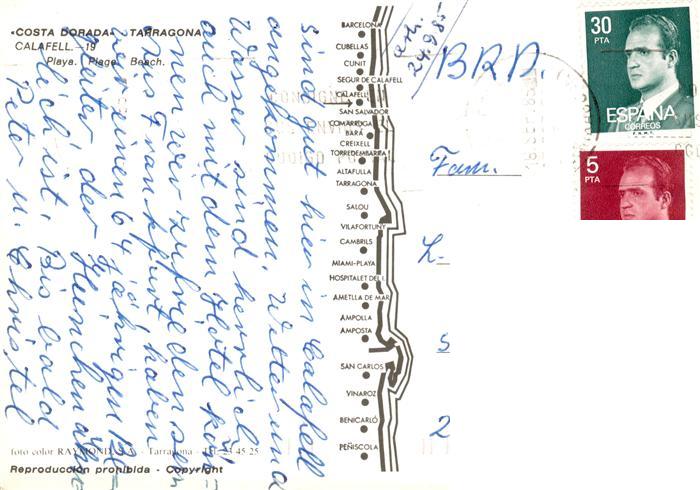 •COSTA DORADA• TARRAGONA
CALAFELL.-19
Playa. Plage. Beach.
sind gut hier in Calafell
angekommen. Wetter und
Wasser sind herrlich
auch mit dem Hotel kön-
nen wir zufrieden sein
aus Frankfurt haben
wir einen 64 jährigen
leiter, der
lich ist. Bis bald
Peter u. Christel
BARCELONA
CUBELLAS
CUNIT
SEGUR DE CALAFELL
CALAFELL
SAN SALVADOR
COMARRUGA
BARÁ
CREIXELL
TORREDEMBARRA
ALTAFULLA
TARRAGONA
SALOU
VILAFORTUNY
CAMBRILS
MIAMI-PLAYA
HOSPITALET DEL I.
AMETLLA DE MAR
AMPOLLA
AMPOSTA
SAN CARLOS
VINAROZ
BENICARLÓ
PEÑISCOLA
erh.
24.9.85
BRD.
Fam.
L-
S
2
30
PTA
ESPAÑA
CORREOS
5
PTA
foto color RAYMOND, S.A. - Tarragona - Tel. 23 45 25
Reproducción prohibida - Copyright